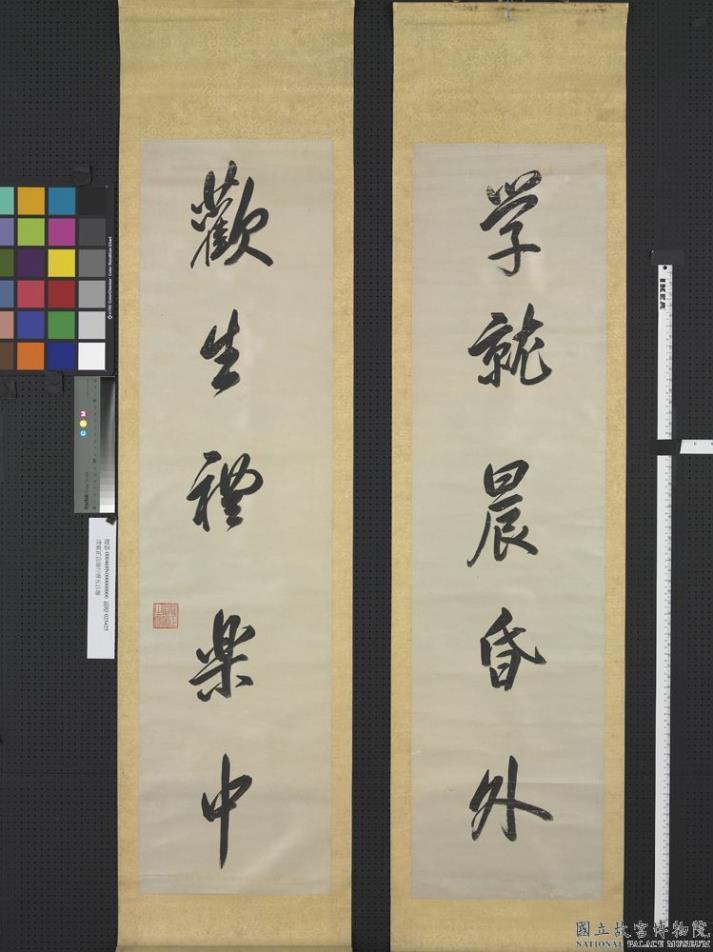 学就晨昏外
歡生禮楽中
IKEA
國立故宮博物院
NATIONAL PALACE MUSEUM